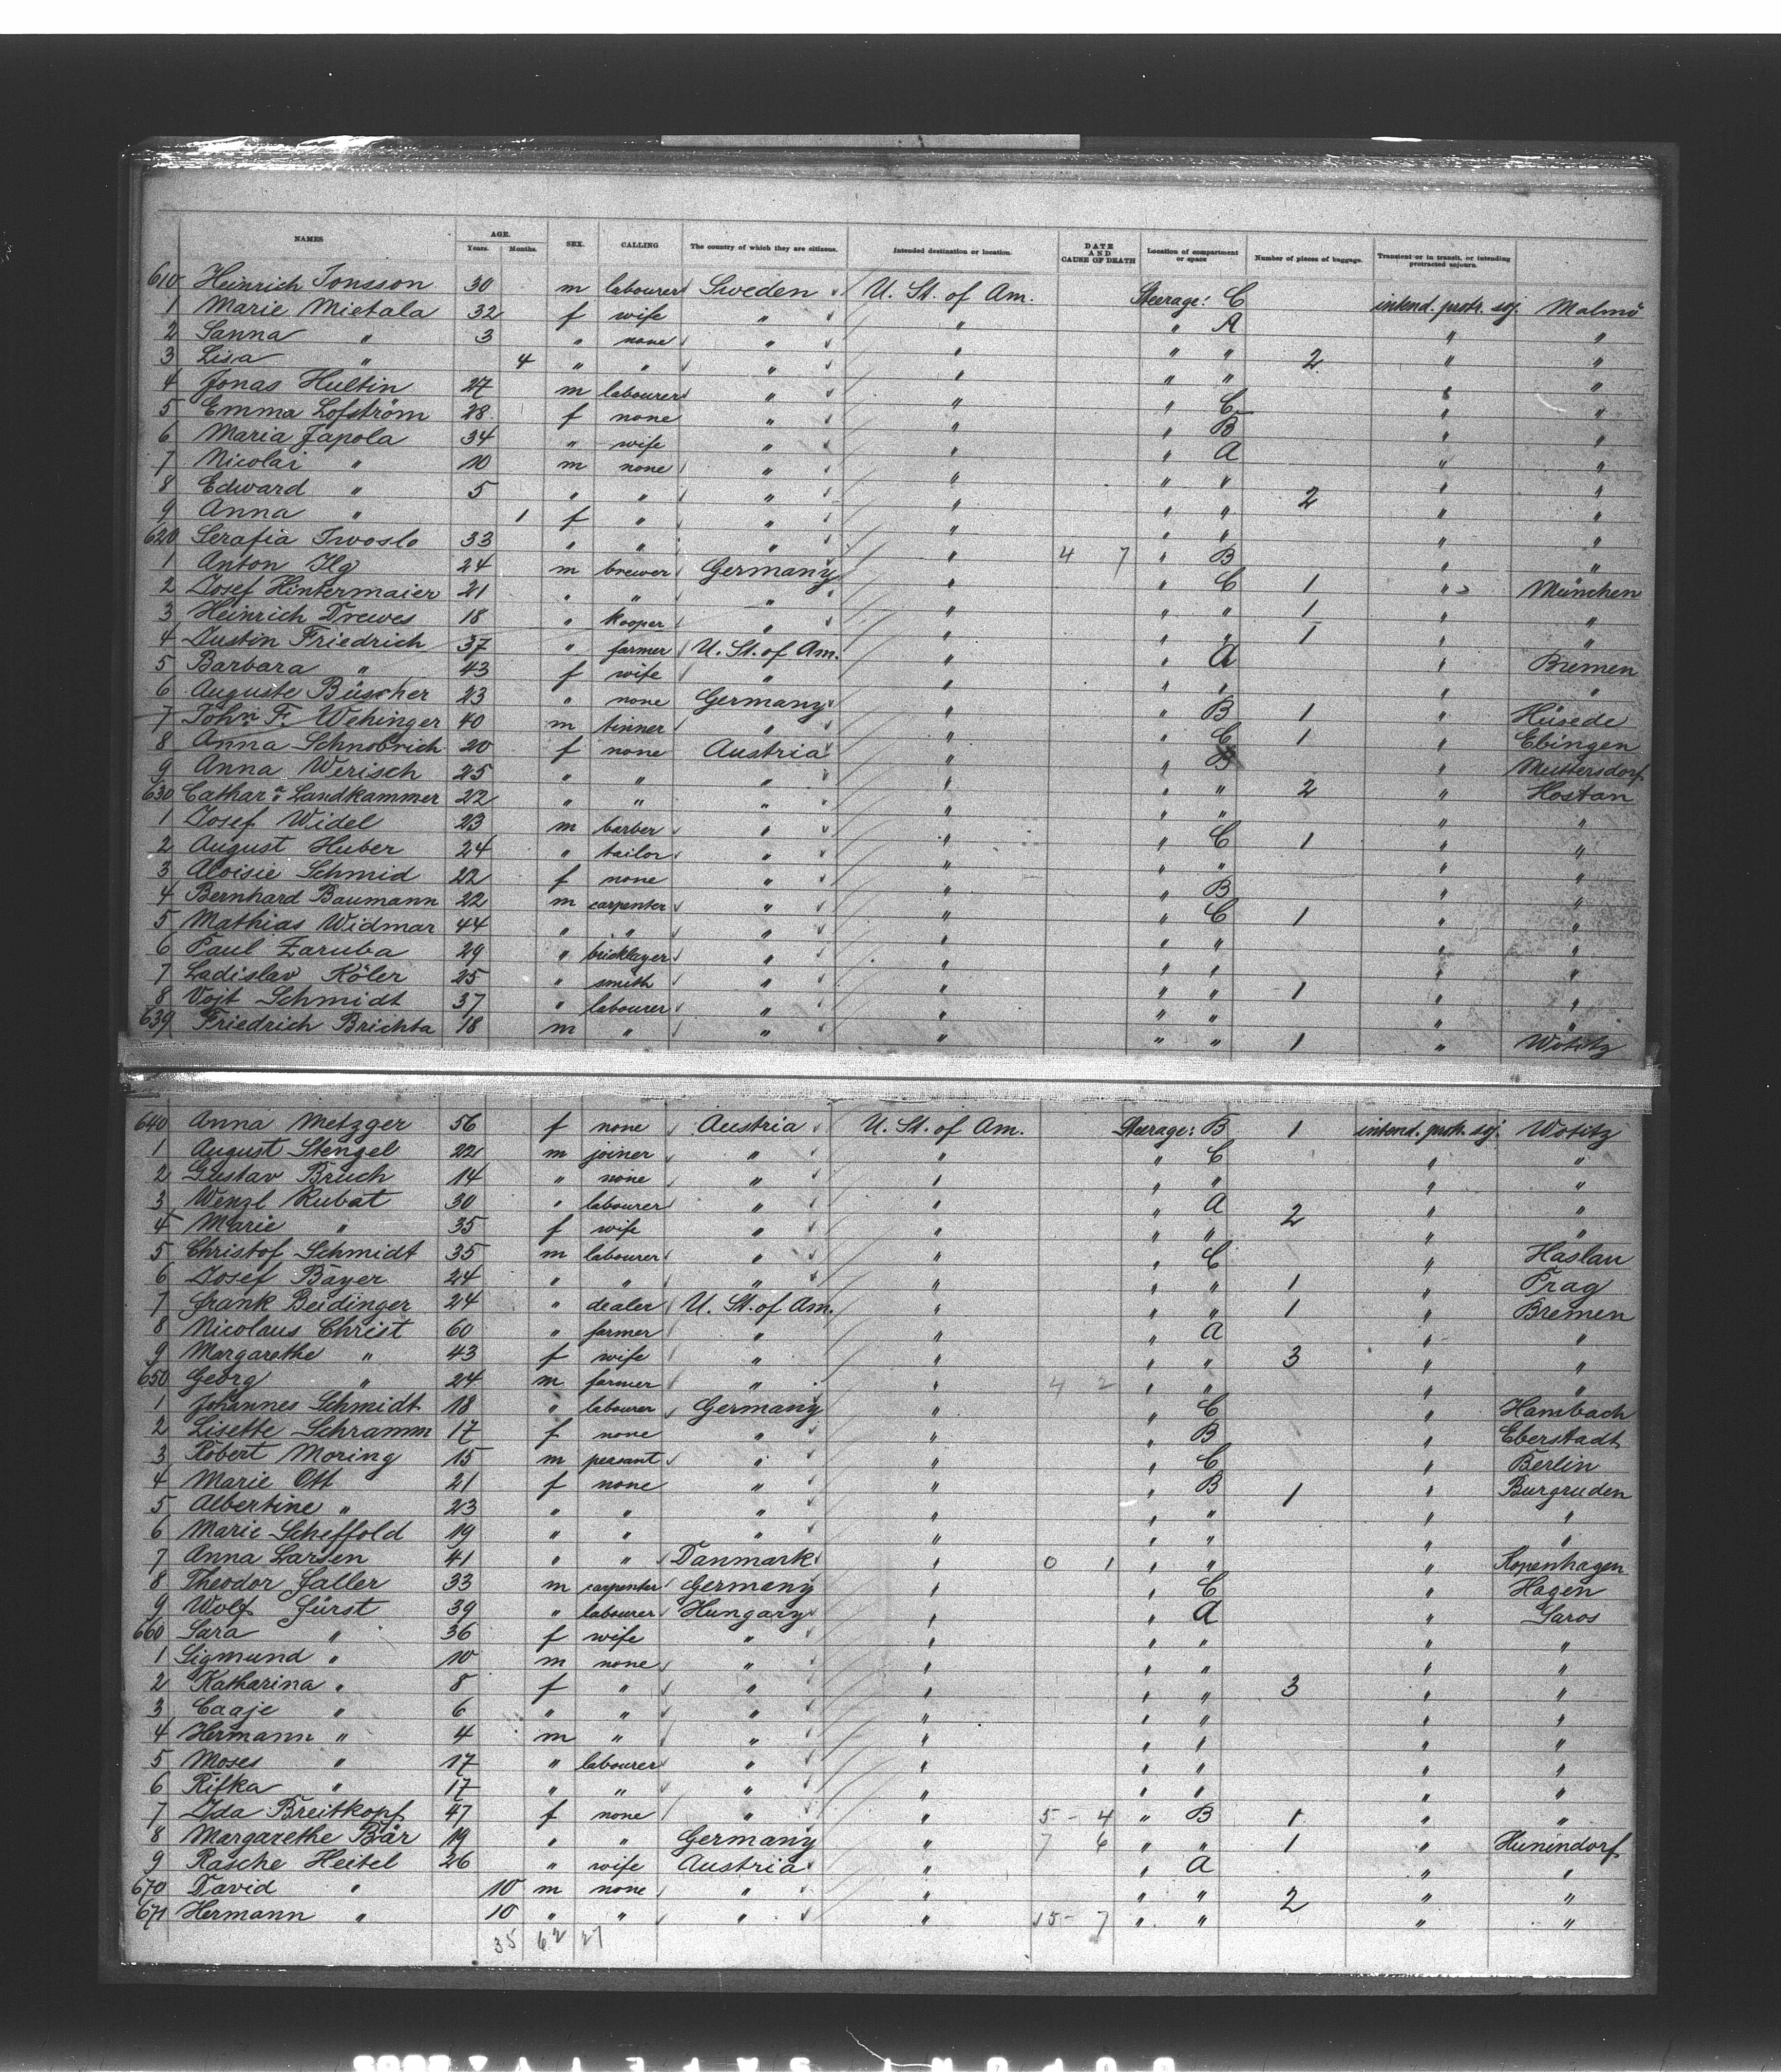 NAMES AGE. Years. Months. SEX. CALLING The country of which they are citizens. Intended destination or location. DATE AND CAUSE OF DEATH Location of compartment or space Number of pieces of baggage. Transient or in transit, or intending protracted sojourn.
610 Heinrich Jonsson 30 m labourer Sweden U. St. of Am. Steerage: C intend. protr. soj. Malmö
1 Marie Mietala 32 f wife " " " A " "
2 Sanna " 3 " none " " " " 2 " "
3 Lisa " 4 " " " " " " " "
4 Jonas Hultin 27 m labourer " " " C " "
5 Emma Lofström 28 f none " " " B " "
6 Maria Japola 34 " wife " " " A " "
7 Nicolai " 10 m none " " " " " "
8 Edward " 5 " " " " " " 2 " "
9 Anna " 1 f " " " " " " "
620 Serafia Ivvoslo 33 " " " " 4 7 " B " "
1 Anton Ilg 24 m brewer Germany " " C 1 " München
2 Josef Hintermaier 21 " " " " " " 1 " "
3 Heinrich Drewes 18 " kooper " " " " 1 "
4 Justin Friedrich 37 " farmer U. St. of Am. " " A " Bremen
5 Barbara " 43 f wife " " " " " "
6 Auguste Büscher 23 " none Germany " " B 1 " Hüsede
7 John F. Wehinger 40 m tinner " " " C 1 " Ebingen
8 Anna Schnobrich 20 f none Austria " " B " Muttersdorf
9 Anna Werisch 25 " " " " " " 2 " Hostan
630 Cathar.a Landkammer 22 " " " " " " " "
1 Josef Widel 23 m barber " " " C 1 " "
2 August Huber 24 " tailor " " " " " "
3 Aloisie Schmid 22 f none " " " B " "
4 Bernhard Baumann 22 m carpenter " " " C 1 " "
5 Mathias Widmar 44 " " " " " " " "
6 Paul Zaruba 29 " bricklayer " " " " " "
7 Ladislav Köler 25 " smith " " " " 1 " "
8 Vojt Schmidt 37 " labourer " " " " " "
639 Friedrich Brichta 18 m " " " " " 1 " Wotitz
640 Anna Metzger 56 f none Austria U. St. of Am. Steerage: B 1 intend. protr. soj. Wotitz
1 August Stengel 22 m joiner " " " C " "
2 Gustav Bruch 14 " none " " " " " "
3 Wenzl Kubat 30 " labourer " " " A 2 " "
4 Marie " 35 f wife " " " " " "
5 Christof Schmidt 35 m labourer " " " C " Haslau
6 Josef Bayer 24 " " " " " " 1 " Prag
7 Frank Beidinger 24 " dealer U. St. of Am. " " " 1 " Bremen
8 Nicolaus Christ 60 " farmer " " " A " "
9 Margarethe " 43 f wife " " " " 3 " "
650 Georg " 24 m farmer " " 4 2 " " " "
1 Johannes Schmidt 18 " labourer Germany " " C " Hambach
2 Lisette Schramm 17 f none " " " B " Eberstadt
3 Robert Moring 15 m peasant " " " C " Berlin
4 Marie Ott 21 f none " " " B 1 " Burgruden
5 Albertine " 23 " " " " " " " "
6 Marie Scheffold 19 " " " " " " " "
7 Anna Larsen 41 " " Danmark " 0 1 " " " Kopenhagen
8 Theodor Faller 33 m carpenter Germany " " C " Hagen
9 Wolf Fürst 39 " labourer Hungary " " A " Saros
660 Sara " 36 f wife " " " " " "
1 Sigmund " 10 m none " " " " " "
2 Katharina " 8 f " " " " " 3 " "
3 Caaje " 6 " " " " " " " "
4 Hermann " 4 m " " " " " " "
5 Moses " 17 " labourer " " " " " "
6 Rifka " 17 " " " " " " " "
7 Ida Breitkopf 47 f none " " 5 - 4 " B 1 " "
8 Margarethe Bär 19 " " Germany " 7 6 " " 1 " Hunindorf
9 Rasche Heitel 26 " wife Austria " " A " "
670 David " 10 m none " " " " 2 " "
671 Hermann " 10 " " " " 15 - 7 " " " "
35 62 27